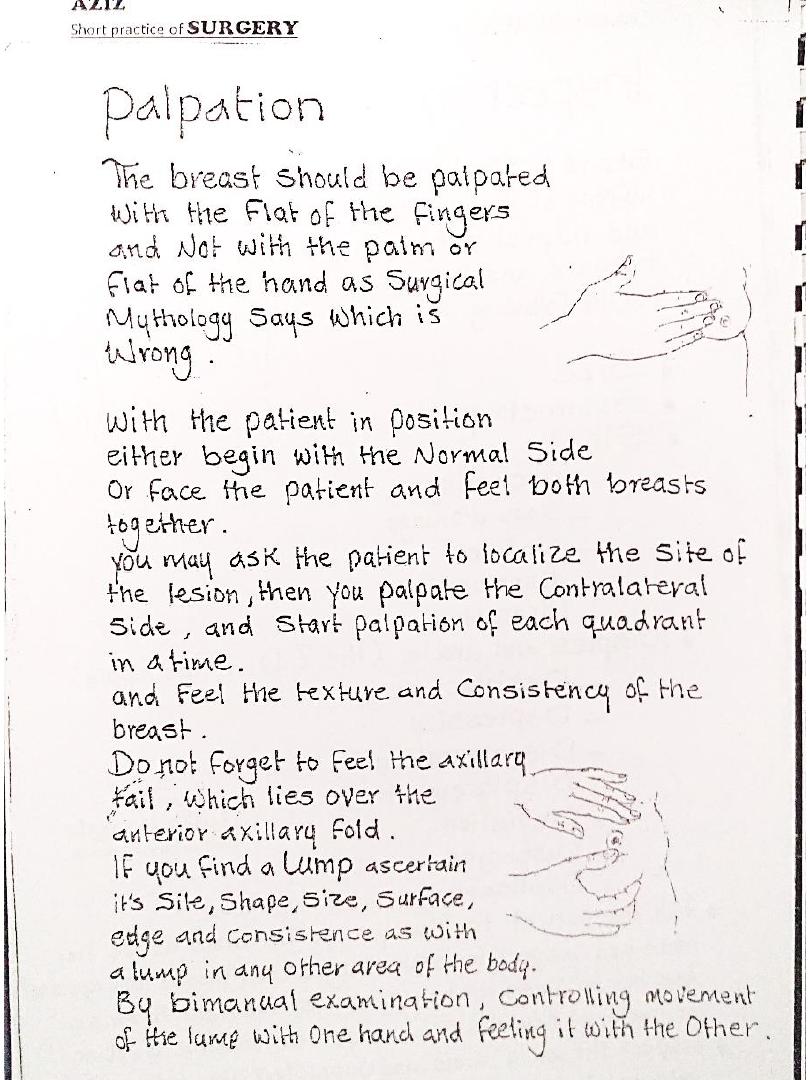 AZIZ
Short practice of SURGERY
Palpation
The breast should be palpated
With the Flat of the fingers
and Not with the palm or
Flat of the hand as Surgical
Mythology Says Which is
Wrong .
With the patient in position
either begin with the Normal Side
Or face the patient and feel both breasts
together.
you may ask the patient to localize the Site of
the lesion, then you palpate the Contralateral
Side , and Start palpation of each quadrant
in a time.
and Feel the texture and Consistency of the
breast .
Do not forget to feel the axillary
tail , Which lies over the
anterior axillary fold .
If you find a Lump ascertain
it's Site, Shape, Size, Surface,
edge and consistence as with
a lump in any other area of the body.
By bimanual examination , Controlling movement
of the lump with One hand and feeling it with the Other .